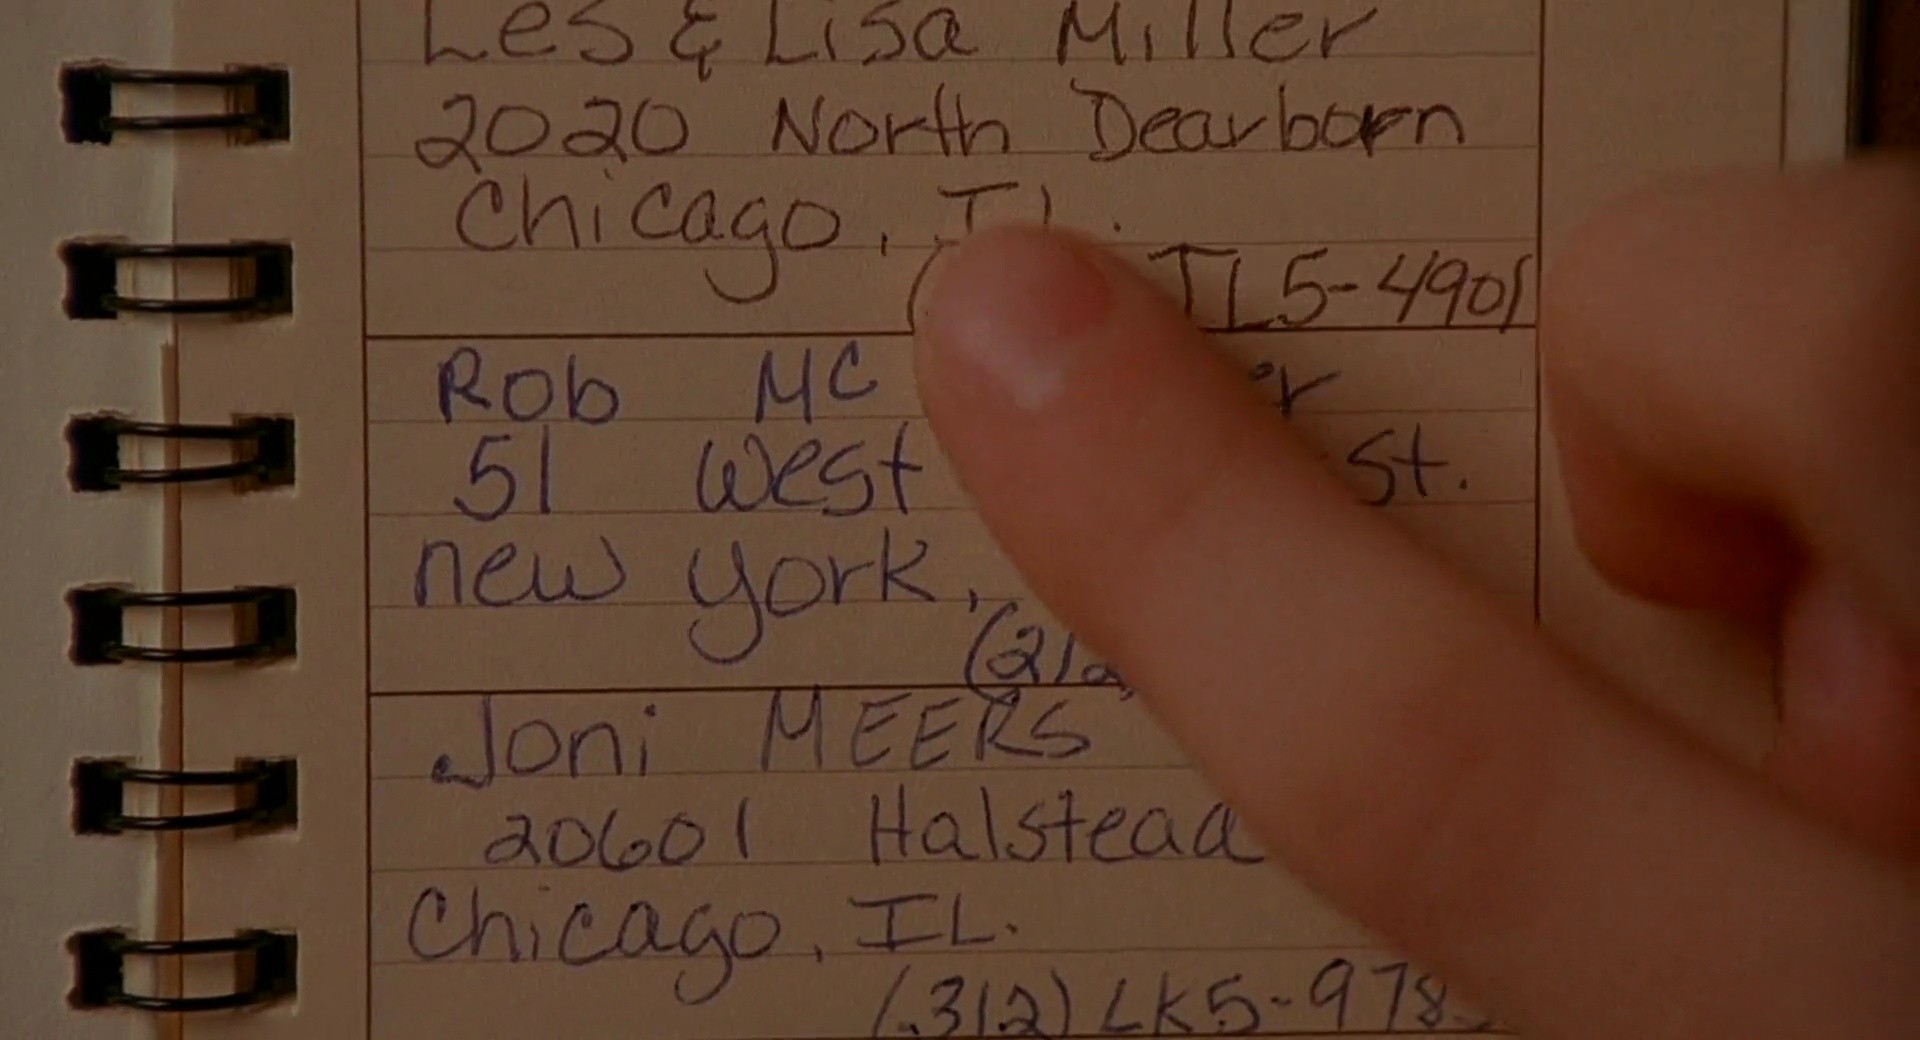 Les & Lisa Miller
2020 North Dearborn
Chicago, IL.
TL5-4901
Rob MC
51 West St.
new york,
(212)
Joni MEERS
20601 Halstead
Chicago, IL.
(312) LK5-978